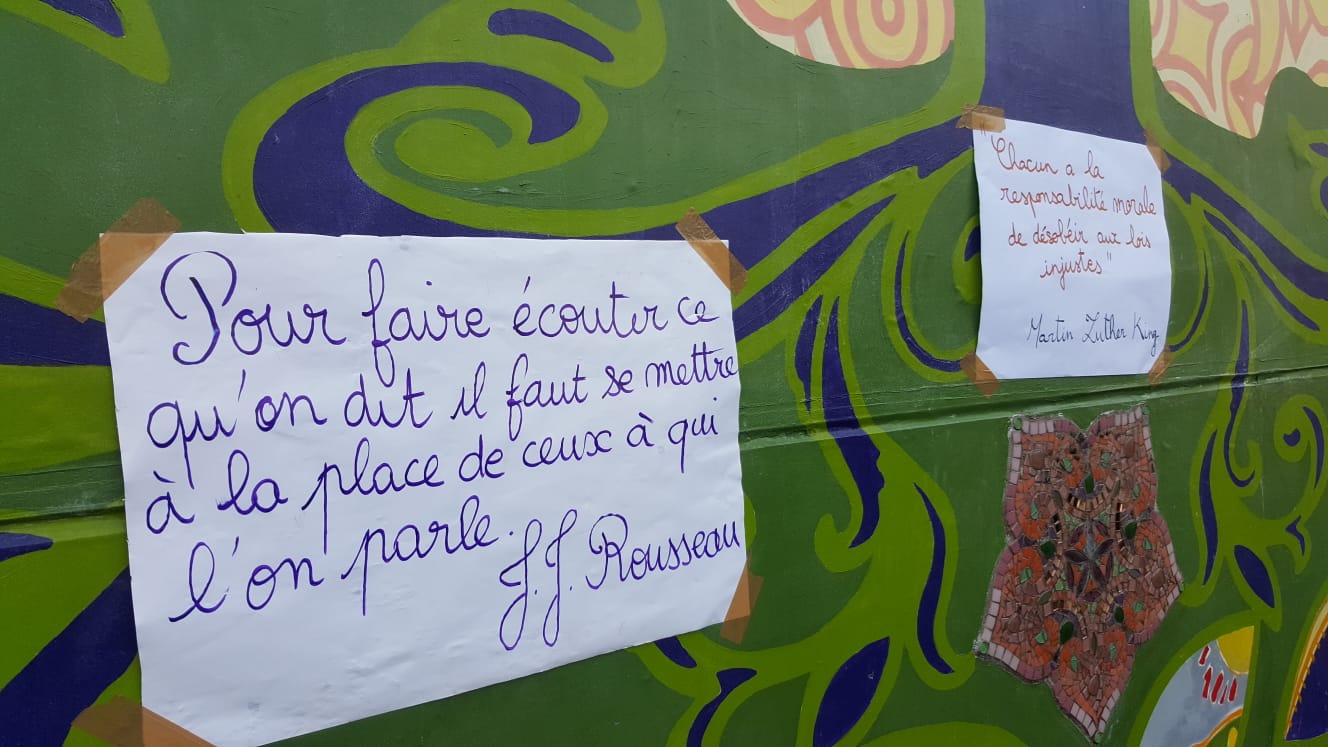 Pour faire écouter ce
qu'on dit il faut se mettre
à la place de ceux à qui
l'on parle.
J.J. Rousseau
"Chacun a la
responsabilité morale
de désobéir aux lois
injustes"
Martin Luther King